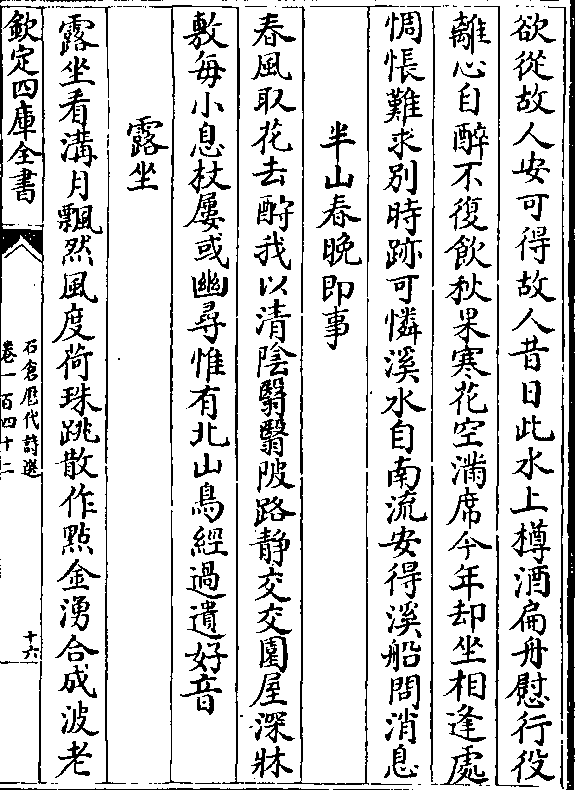 欲從故人安可得故人昔日此水上樽酒扁舟慰行役
離心自醉不復飲秋果寒花空滿席今年却坐相逢處
惆悵難求別時跡可憐溪水自南流安得溪船問消息
半山春晚即事
春風取花去酧我以清陰翳翳陂路静交交園屋深牀
敷每小息杖屨或幽尋惟有北山鳥經過遺好音
露坐
露坐看溝月飄然風度荷珠跳散作㸃金湧合成波老
欽定四庫全書
石倉歴代詩選
卷一百四十二
十六